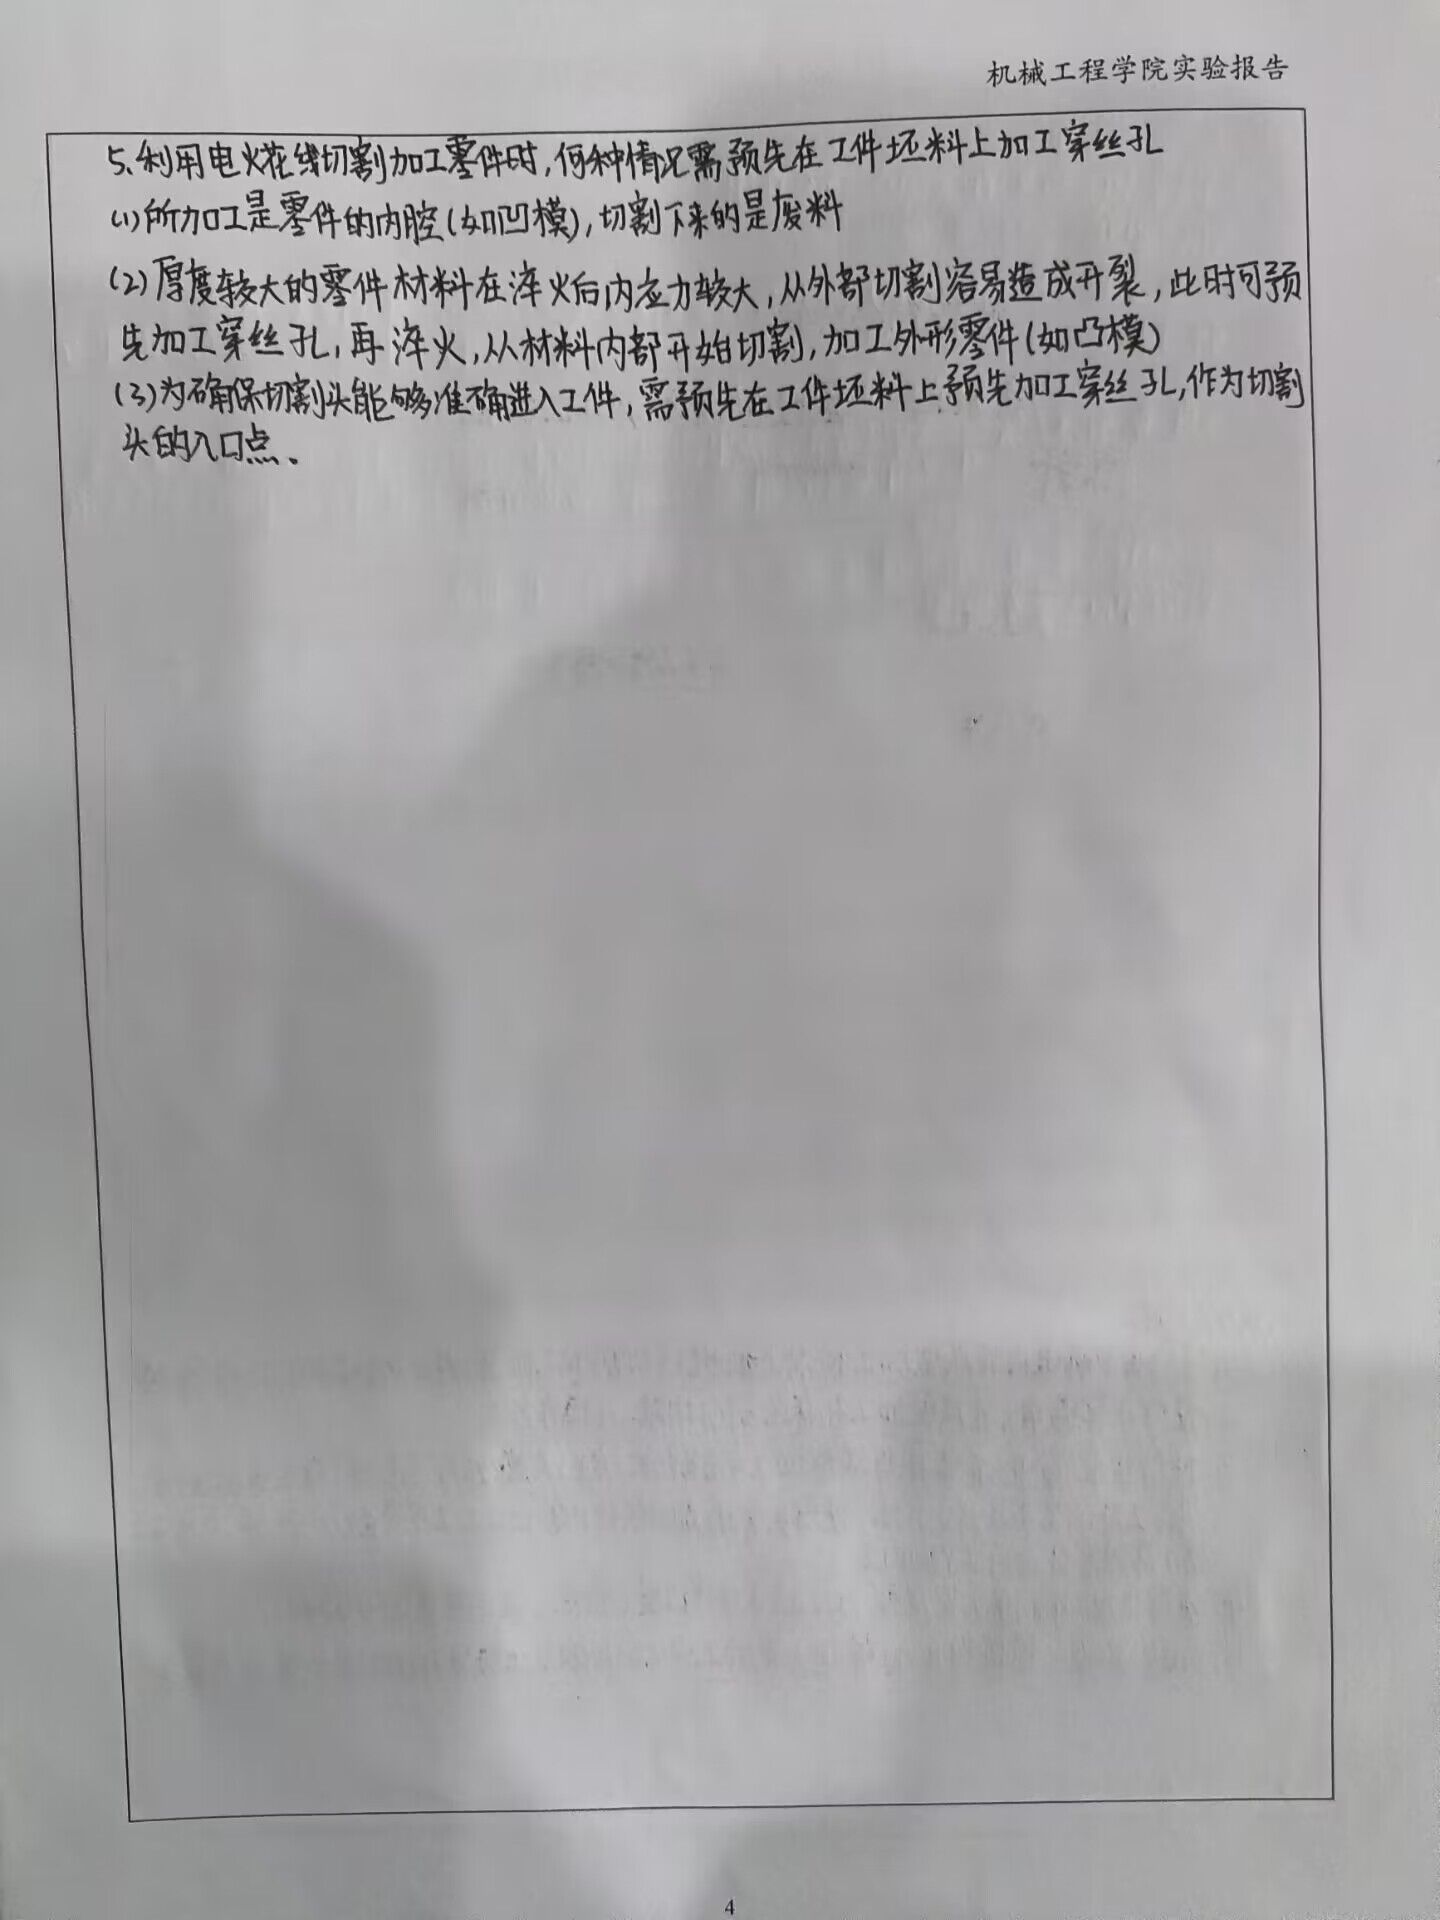 机械工程学院实验报告
5、利用电火花线切割加工零件时，何种情况需预先在工件坯料上加工穿丝孔
(1)所加工是零件的内腔(如凹模)，切割下来的是废料
(2)厚度较大的零件材料在淬火后内应力较大，从外部切割容易造成开裂，此时可预
先加工穿丝孔，再淬火，从材料内部开始切割，加工外形零件(如凸模)
(3)为确保切割头能够准确进入工件，需预先在工件坯料上预先加工穿丝孔，作为切割
头的入口点、
4